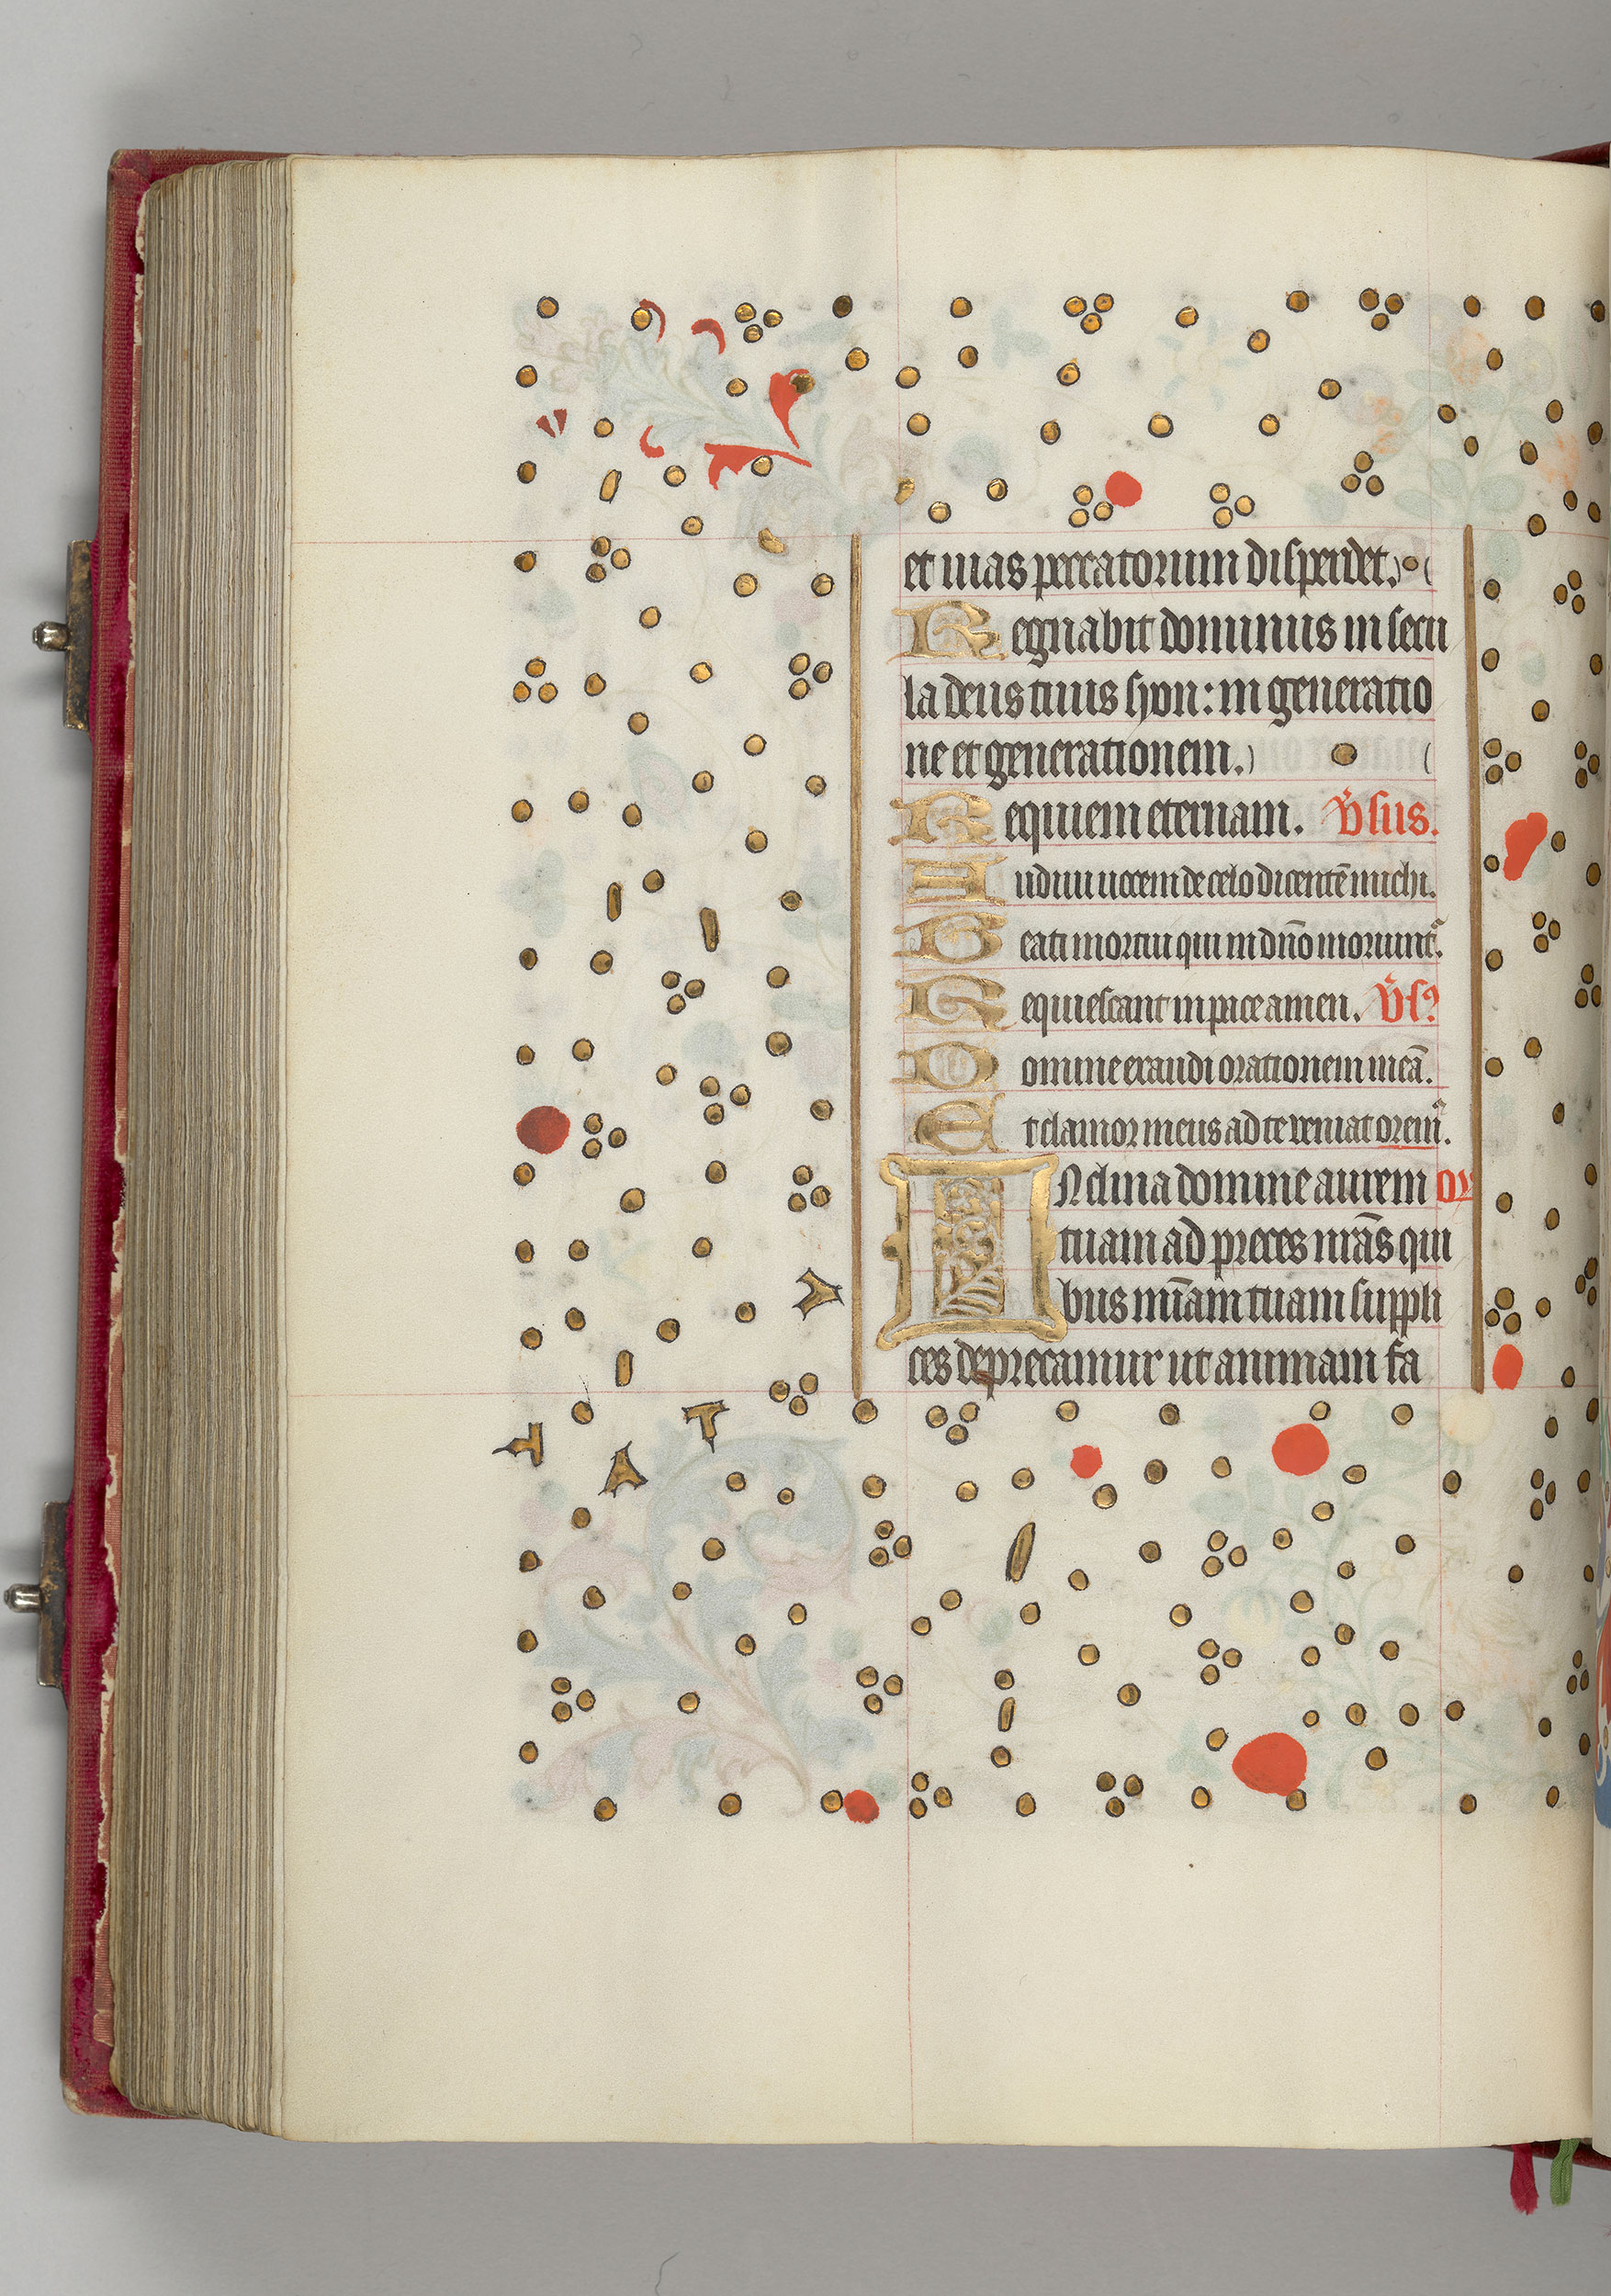 et uias peccatorum disperdet.
Regnabit dominus in secu
la deus tuus syon: in generatio
ne et generationem.
Requiem eternam. v̄sus.
Audiui uocem de celo dicentē michi.
Beati mortui qui in dn̄o moriunt᷑.
Requiescant in pace amen. v̄s?
Domine exaudi orationem meā.
Et clamor meus ad te veniat orem᷑.
INclina domine aurem or
tuam ad preces nr̄as qui
bus mīam tuam suppli
ces deprecamur ut animam fa